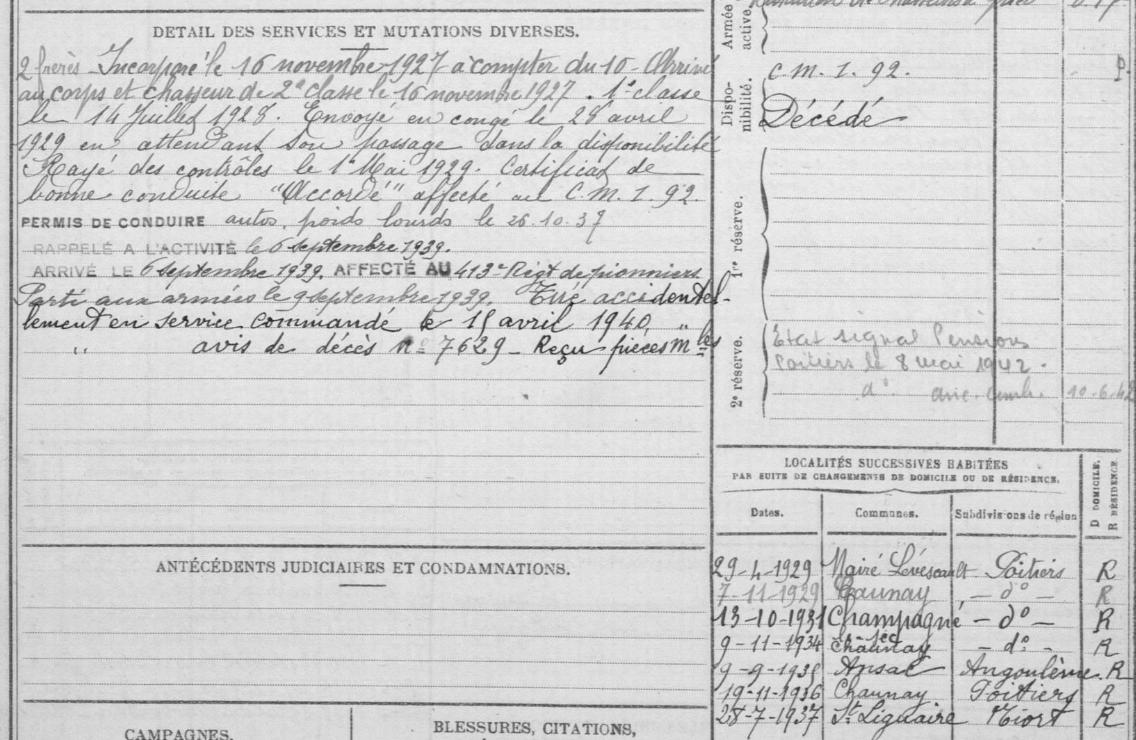 DETAIL DES SERVICES ET MUTATIONS DIVERSES.
2 frères Incorporé le 16 novembre 1927 à compter du 10 - Arrivé
au corps et chasseur de 2e classe le 16 novembre 1927. 1e classe
le 14 Juillet 1928. Envoyé en congé le 28 avril
1929 en attendant son passage dans la disponibilité
Rayé des contrôles le 1er Mai 1929. Certificat de
bonne conduite "Accordé" affecté au C.M.I. 92.
PERMIS DE CONDUIRE autos, poids lourds le 26.10.37
RAPPELÉ A L'ACTIVITÉ le 6 septembre 1939.
ARRIVÉ LE 6 septembre 1939, AFFECTÉ AU 413e Régt de pionniers
Parti aux armées le 9 septembre 1939. Tué accidentel-
lement en service commandé le 15 avril 1940,
" avis de décès No 7629 - Reçu pièces mles
ANTÉCÉDENTS JUDICIAIRES ET CONDAMNATIONS.
CAMPAGNES.
BLESSURES, CITATIONS,
Armée active.
Dispo-nibilité.
C.M.I. 92.
P.
Décédé
1re réserve.
2e réserve.
Etat signal Pensions
Poitiers le 8 mai 1942.
do 10-6-42
LOCALITÉS SUCCESSIVES HABITÉES
PAR SUITE DE CHANGEMENTS DE DOMICILE OU DE RÉSIDENCE.
D DOMICILE.
R RÉSIDENCE.
Dates. Communes. Subdivisions de région
29-4-1929 Mairé Lévescault Poitiers R
7-11-1929 Chaunay - do - R
13-10-1931 Champagné - do - R
9-11-1934 Chaunay - do - R
9-9-1935 Ansac Angoulême. R
19-11-1936 Chaunay Poitiers R
28-7-1937 St Liguaire Niort R